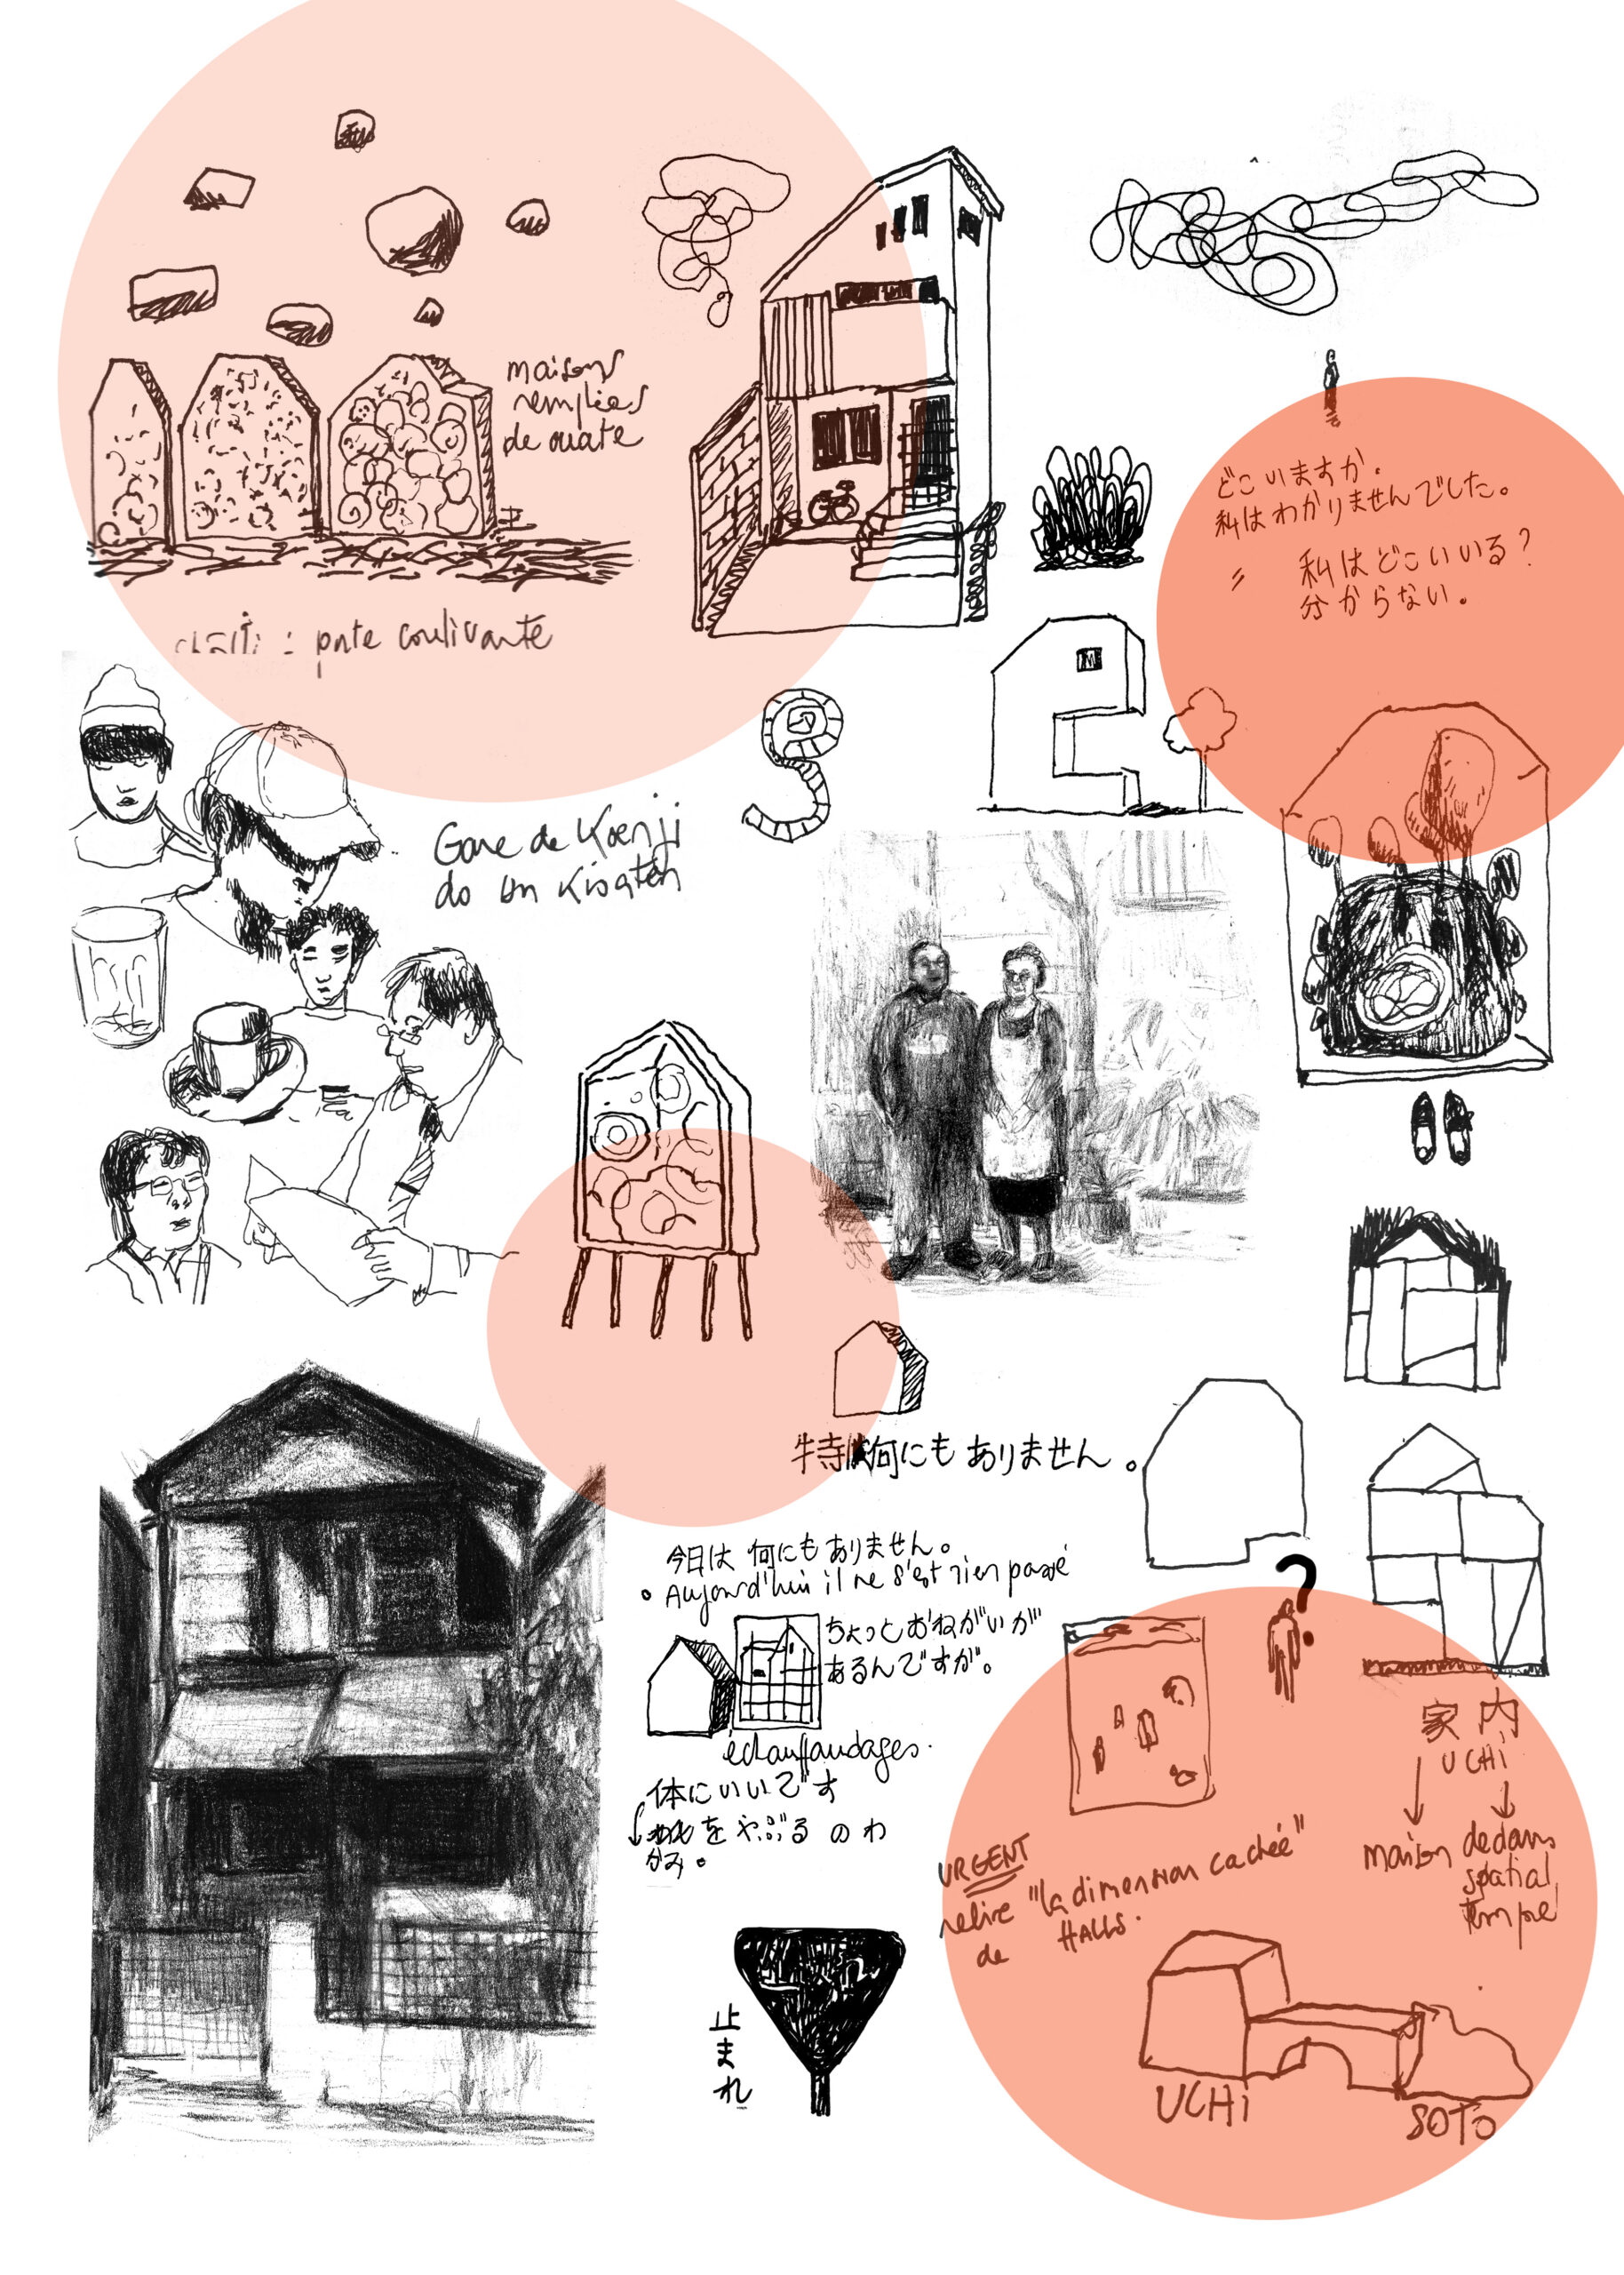 maisons
remplies
de ouate
: porte coulissante
どこいますか.
私はわかりませんでした。
= 私はどこいいる?
分からない。
Gare de Koenji
do un Kisaten
特は何にもありません。
今日は 何にもありません。
• Aujourd'hui il ne s'est rien passé
ちょっとおねがいが
あるんですが。
échauffaudages.
体にいいです
をやぶる のわ
かみ。
止まれ
?
家 内
UCHi
maison dedans
spatial
URGENT
relire "la dimension cachée"
de HALLS.
UCHi
SOTO